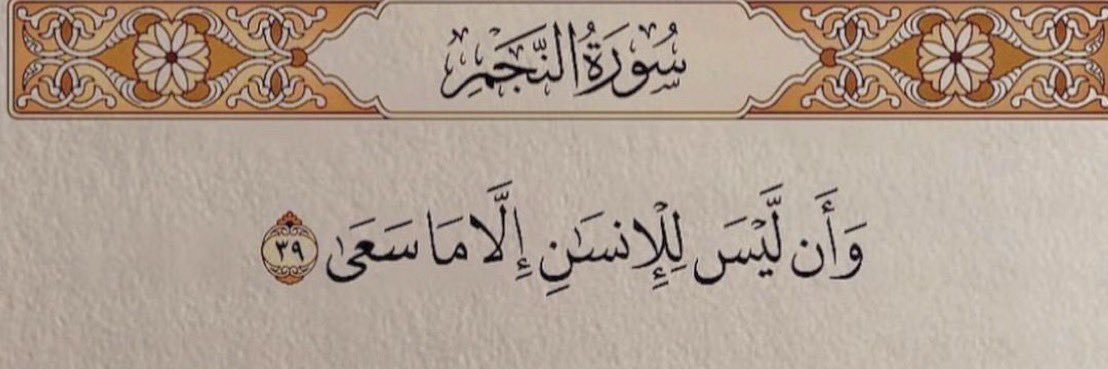 سُورَةُ النَّجْمِ
وَأَن لَّيْسَ لِلْإِنسَٰنِ إِلَّا مَا سَعَىٰ ٣٩